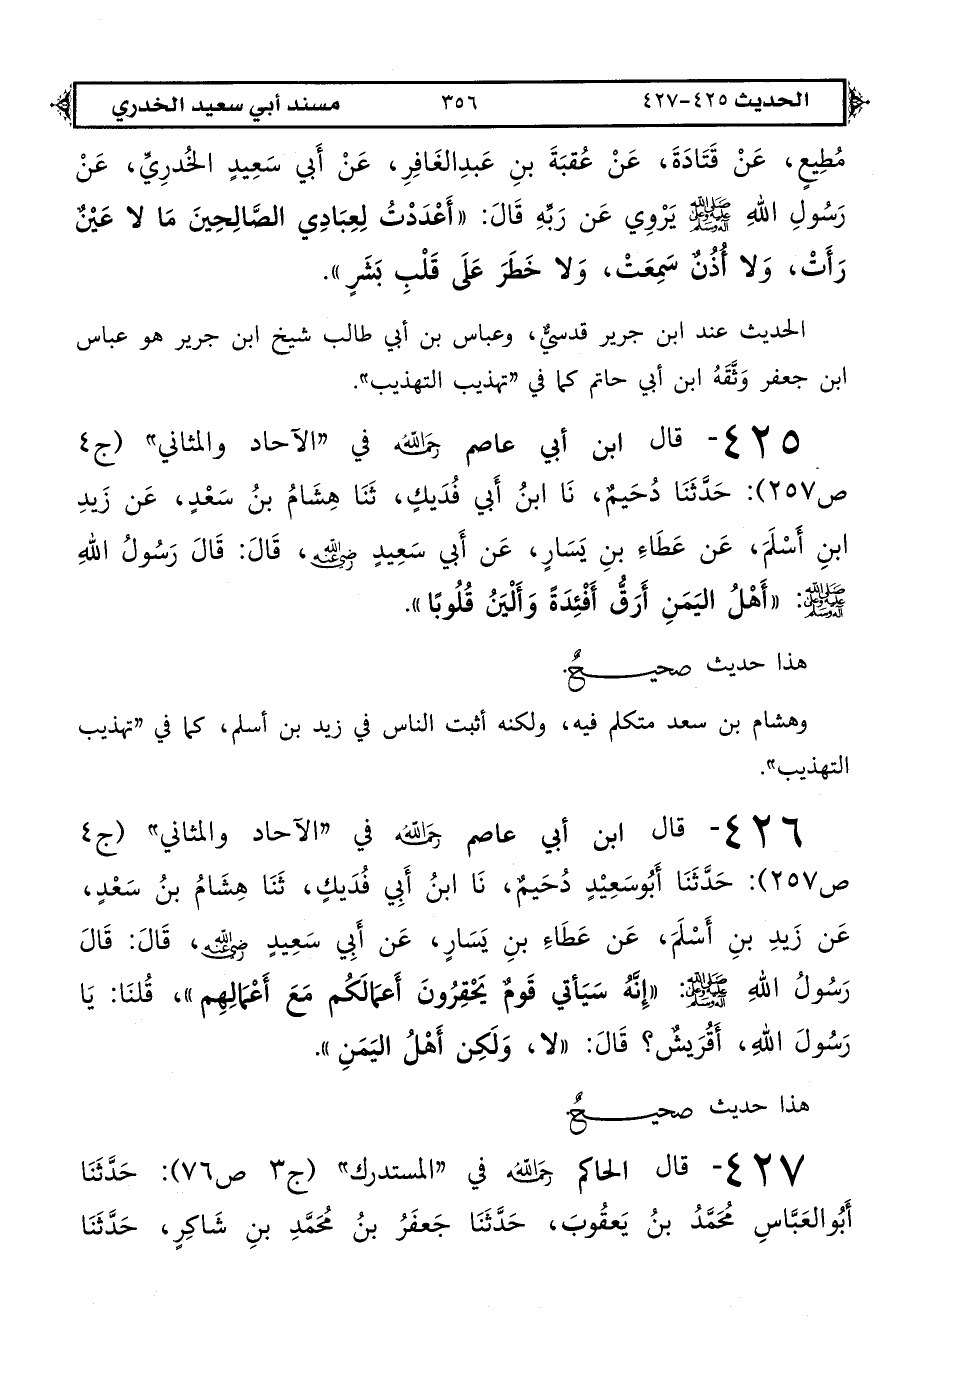 الحديث ٤٢٥-٤٢٧ ٣٥٦ مسند أبي سعيد الخدري
مُطِيعٍ، عَنْ قَتَادَةَ، عَنْ عُقبَةَ بنِ عَبدِالغَافِرِ، عَنْ أَبي سَعِيدٍ الخُدرِيِّ، عَنْ
رَسُولِ اللهِ ﷺ يَرْوِي عَن رَبِّهِ قَالَ: «أَعْدَدْتُ لِعِبَادِي الصَّالِحِينَ مَا لا عَيْنٌ
رَأَتْ، وَلا أُذُنٌ سَمِعَتْ، وَلا خَطَرَ عَلَى قَلْبِ بَشَرٍ».
الحديث عند ابن جرير قدسيٌّ، وعباس بن أبي طالب شيخ ابن جرير هو عباس
ابن جعفر وَثَّقَهُ ابن أبي حاتم كما في "تهذيب التهذيب".
٤٢٥- قال ابن أبي عاصم رحمه الله في "الآحاد والمثاني" (ج٤
ص٢٥٧): حَدَّثَنَا دُحَيمٌ، نَا ابنُ أَبي فُدَيكٍ، ثَنَا هِشَامُ بنُ سَعْدٍ، عَن زَيدِ
ابنِ أَسْلَمَ، عَن عَطَاءِ بنِ يَسَارٍ، عَن أَبي سَعِيدٍ رضي الله عنه، قَالَ: قَالَ رَسُولُ اللهِ
ﷺ: «أَهْلُ اليَمَنِ أَرَقُّ أَفْئِدَةً وَأَلْيَنُ قُلُوبًا».
هذا حديث صحيحٌ.
وهشام بن سعد متكلم فيه، ولكنه أثبت الناس في زيد بن أسلم، كما في "تهذيب
التهذيب".
٤٢٦- قال ابن أبي عاصم رحمه الله في "الآحاد والمثاني" (ج٤
ص٢٥٧): حَدَّثَنَا أَبُوسَعِيْدٍ دُحَيمٌ، نَا ابنُ أَبِي فُدَيكٍ، ثَنَا هِشَامُ بنُ سَعْدٍ،
عَن زَيدِ بنِ أَسْلَمَ، عَن عَطَاءِ بنِ يَسَارٍ، عَن أَبِي سَعِيدٍ رضي الله عنه، قَالَ: قَالَ
رَسُولُ اللهِ ﷺ: «إِنَّهُ سَيَأتي قَومٌ يَحْقِرُونَ أَعمَالَكُم مَعَ أَعْمَالِهِم»، قُلنَا: يَا
رَسُولَ اللهِ، أَقُرَيشٌ؟ قَالَ: «لا، وَلَكِن أَهْلُ اليَمَنِ».
هذا حديث صحيحٌ.
٤٢٧- قال الحاكم رحمه الله في "المستدرك" (ج٣ ص٧٦): حَدَّثَنَا
أَبُوالعَبَّاسِ مُحَمَّدُ بنُ يَعقُوبَ، حَدَّثَنَا جَعفَرُ بنُ مُحَمَّدِ بنِ شَاكِرٍ، حَدَّثَنَا